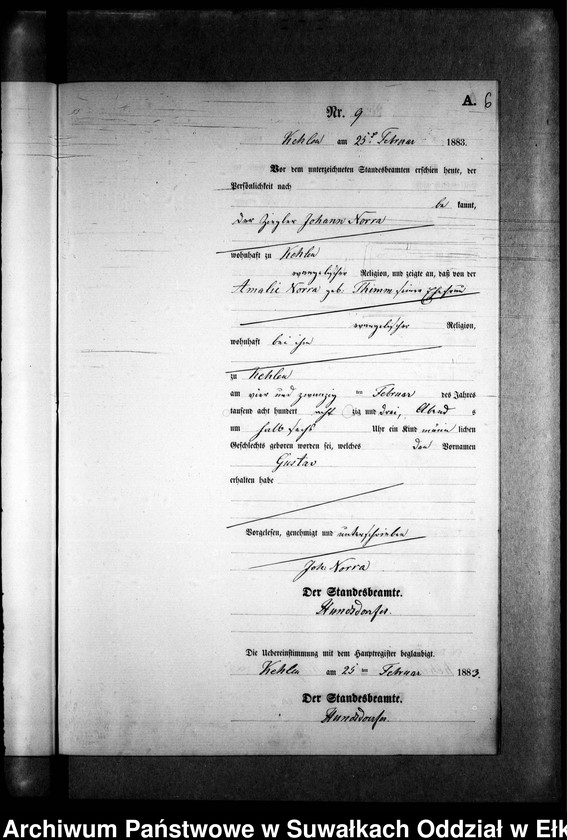 A. 6
Nr. 9
Kehlen am 25ᵗ Februar 1883.
Vor dem unterzeichneten Standesbeamten erschien heute, der
Persönlichkeit nach
be kannt,
der Ziegler Johann Norra
wohnhaft zu Kehlen
evangelischer Religion, und zeigte an, daß von der
Amalie Norra geb. Thimm seiner Ehefrau
evangelischer Religion,
wohnhaft bei ihm
zu Kehlen
am vier und zwanzig ten Februar des Jahres
tausend acht hundert acht zig und drei, Abend s
um halb sechs Uhr ein Kind männ lichen
Geschlechts geboren worden sei, welches den Vornamen
Gustav
erhalten habe
Vorgelesen, genehmigt und unterschrieben
Joh. Norra
Der Standesbeamte.
Hundsdorfer.
Die Uebereinstimmung mit dem Hauptregister beglaubigt.
Kehlen am 25 ten Februar 1883.
Der Standesbeamte.
Hundsdorfer.
Archiwum Państwowe w Suwałkach Oddział w Ełk